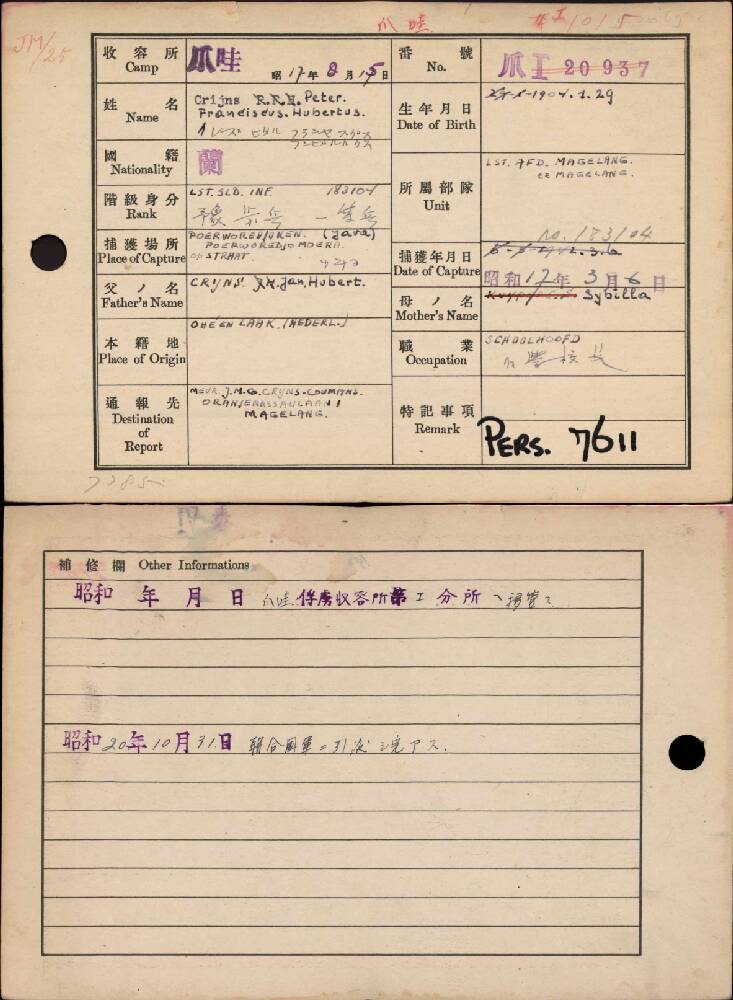 爪哇
JM/25
收容所 Camp
爪哇
昭17年8月15日
番號 No.
爪I 20937
姓名 Name
Crijns P.F.H. Peter.
Franciscus. Hubertus.
生年月日 Date of Birth
1904.1.29
國籍 Nationality
蘭
所屬部隊 Unit
LST. AFD. MAGELANG.
te MAGELANG.
No. 183104
階級身分 Rank
LST. SLD. INF. 183104
捕獲場所 Place of Capture
POERWOREDJO/KEN. (Java)
POERWOREDJO MOERA.
OP STRAAT.
捕獲年月日 Date of Capture
昭和17年3月6日
父ノ名 Father's Name
CRYNS. Jan, Hubert.
母ノ名 Mother's Name
Sybilla
本籍地 Place of Origin
OHE EN LAAK. (NEDERL.)
職業 Occupation
SCHOOLHOOFD
小學校長
通報先 Destination of Report
MEVR. J.M.G. CRYNS-COUMANS.
ORANJENASSAULAAN 1
MAGELANG.
特記事項 Remark
PERS. 7611
補修欄 Other Informations
昭和 年 月 日 爪哇俘虜収容所第I分所
昭和20年10月31日 聯合國軍ニ引渡